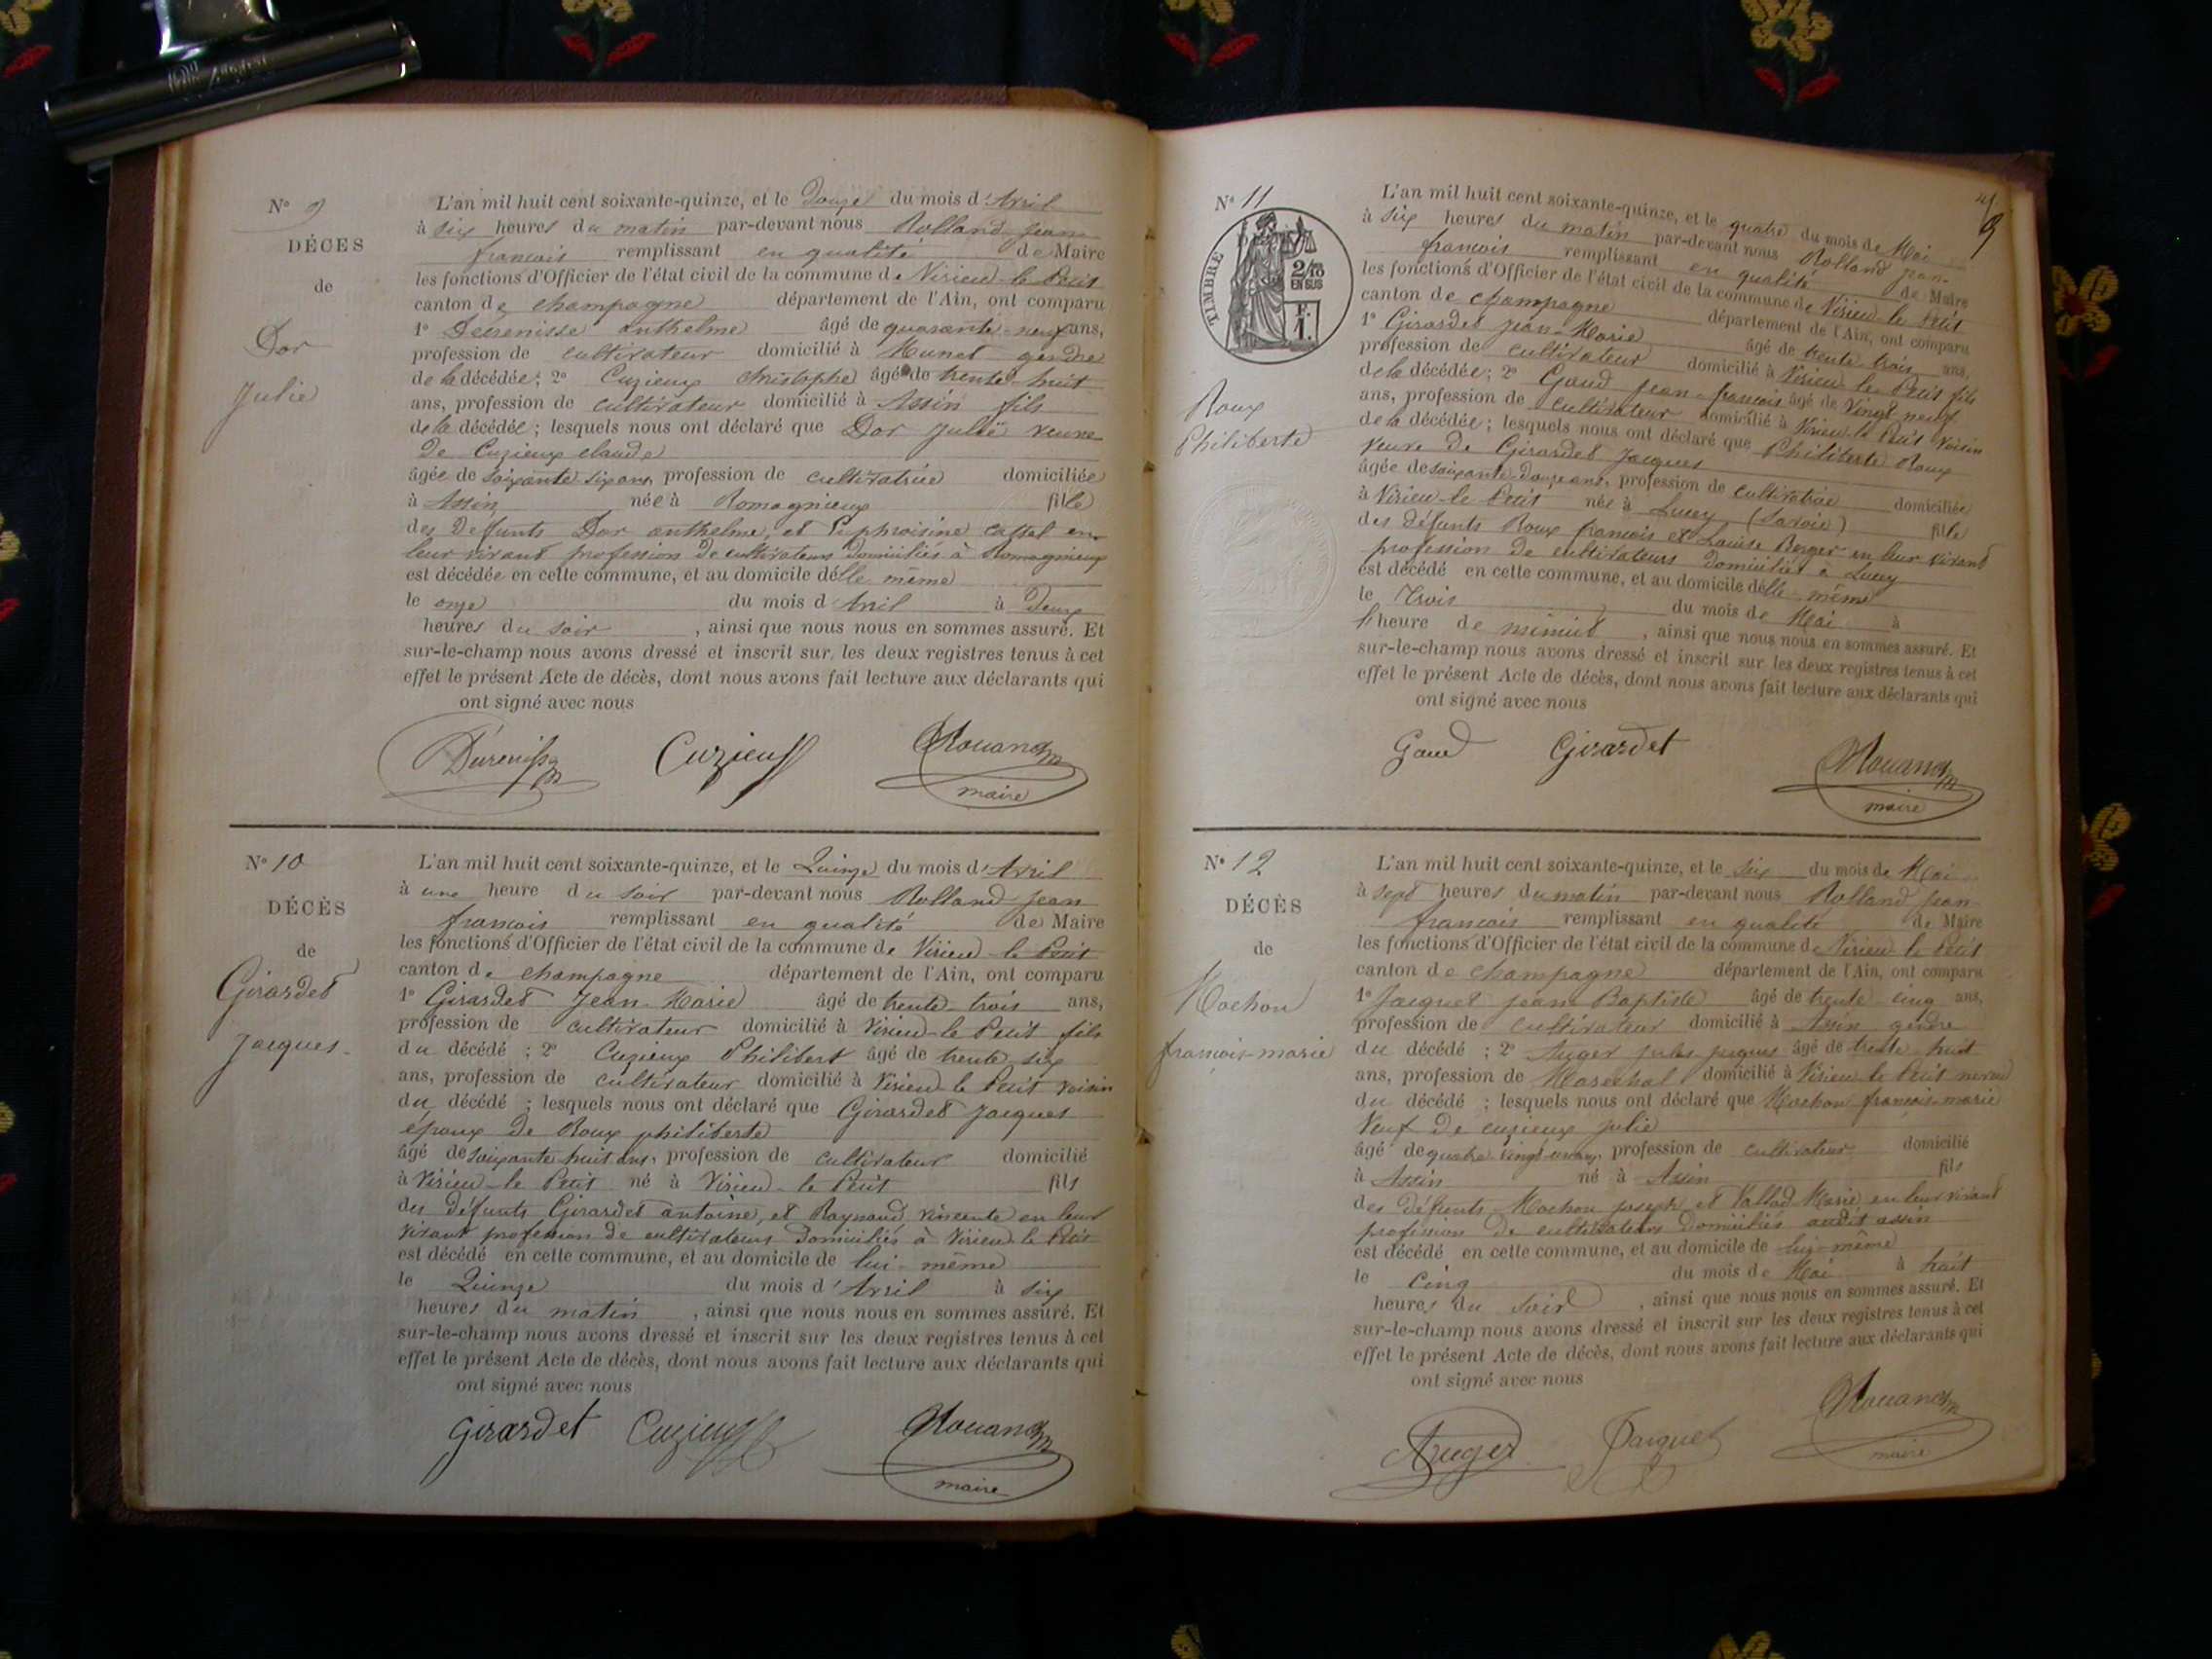 N° 9
DÉCES
de
Dor
Julie
L'an mil huit cent soixante-quinze, et le Douze du mois d'Avril
à six heures du matin par-devant nous Rolland jean
francois remplissant en qualité de Maire
les fonctions d'Officier de l'état civil de la commune de Virieu-le-Petit
canton de champagne département de l'Ain, ont comparu
1° anthelme âgé de quarante-neuf ans,
profession de cultivateur domicilié à Munet gendre
de la décédée; 2° Cuzieux christophe âgé de trente-huit
ans, profession de cultivateur domicilié à Assin fils
de la décédée; lesquels nous ont déclaré que Dor julie veuve
De Cuzieux claude
âgée de soixante six ans, profession de cultivatrice domiciliée
à Assin née à Romagnieux fille
des Defunts Dor anthelme, et cattel en
leur vivant profession De cultivateurs Domiciliés à Romagnieux
est décédée en cette commune, et au domicile d'elle même
le onze du mois d'Avril à Deux
heures du soir, ainsi que nous nous en sommes assuré. Et
sur-le-champ nous avons dressé et inscrit sur les deux registres tenus à cet
effet le présent Acte de décès, dont nous avons fait lecture aux déclarants qui
ont signé avec nous
Cuzieux
maire
N° 10
DÉCÈS
de
Girardet
Jacques
L'an mil huit cent soixante-quinze, et le Quinze du mois d'Avril
à une heure du soir par-devant nous Rolland jean
francois remplissant en qualité de Maire
les fonctions d'Officier de l'état civil de la commune de Virieu-le-Petit
canton de champagne département de l'Ain, ont comparu
1° Girardet Jean-Marie âgé de trente-trois ans,
profession de cultivateur domicilié à Virieu-le-Petit fils
du décédé ; 2° Cuzieux Philibert âgé de trente six
ans, profession de cultivateur domicilié à Virieu-le-Petit voisin
du décédé ; lesquels nous ont déclaré que Girardet Jacques
époux de Roux philiberte
âgé de soixante-huit ans, profession de cultivateur domicilié
à Virieu-le-Petit né à Virieu-le-Petit fils
des défunts Girardet antoine, et Raynaud vincente en leur
vivant profession de cultivateurs Domiciliés à Virieu-le-Petit
est décédé en cette commune, et au domicile de lui-même
le Quinze du mois d'Avril à six
heures du matin, ainsi que nous nous en sommes assuré. Et
sur-le-champ nous avons dressé et inscrit sur les deux registres tenus à cet
effet le présent Acte de décès, dont nous avons fait lecture aux déclarants qui
ont signé avec nous
Girardet Cuzieux
maire
9
N° 11
TIMBRE
2/10
EN SUS
F.
1.
Roux
Philiberte
L'an mil huit cent soixante-quinze, et le quatre du mois de Mai
à six heures du matin par-devant nous Rolland jean-
francois remplissant en qualité de Maire
les fonctions d'Officier de l'état civil de la commune de Virieu-le-Petit
canton de champagne département de l'Ain, ont comparu
1° Girardet jean-Marie âgé de trente trois ans,
profession de cultivateur domicilié à Virieu-le-Petit fils
de la décédée; 2° Gaud jean-francois âgé de Vingt neuf
ans, profession de cultivateur domicilié à Virieu-le-Petit Voisin
de la décédée; lesquels nous ont déclaré que Philiberte Roux
veuve de Girardet jacques
âgée de soixante-Douze ans, profession de cultivatrice domiciliée
à Virieu-le-Petit née à Lucey (Savoie) fille
des défunts Roux francois et Louise Berger en leur vivant
profession de cultivateurs Domiciliés à Lucey
est décédé en cette commune, et au domicile d'elle même
le Trois du mois de Mai à
l'heure de minuit, ainsi que nous nous en sommes assuré. Et
sur-le-champ nous avons dressé et inscrit sur les deux registres tenus à cet
effet le présent Acte de décès, dont nous avons fait lecture aux déclarants qui
ont signé avec nous
Gaud Girardet
maire
N° 12
DÉCÈS
de
Mochon
francois-marie
L'an mil huit cent soixante-quinze, et le six du mois de Mai
à sept heures du matin par-devant nous Rolland jean
francois remplissant en qualité de Maire
les fonctions d'Officier de l'état civil de la commune de Virieu-le-Petit
canton de champagne département de l'Ain, ont comparu
1° Jacquet jean Baptiste âgé de trente cinq ans,
profession de cultivateur domicilié à Assin gendre
du décédé ; 2° Auger jules jacques âgé de trente-huit
ans, profession de Marechal domicilié à Virieu le Petit neveu
du décédé ; lesquels nous ont déclaré que Mochon francois-marie
Veuf de cuzieux julie
âgé de quatre vingt-un ans, profession de cultivateur domicilié
à Assin né à Assin fils
des défunts Mochon joseph et Vallod Marie en leur vivant
profession de cultivateurs domiciliés audit assin
est décédé en cette commune, et au domicile de lui-même
le Cinq du mois de Mai à huit
heures du Soir, ainsi que nous nous en sommes assuré. Et
sur-le-champ nous avons dressé et inscrit sur les deux registres tenus à cet
effet le présent Acte de décès, dont nous avons fait lecture aux déclarants qui
ont signé avec nous
Auger Jacquet
maire